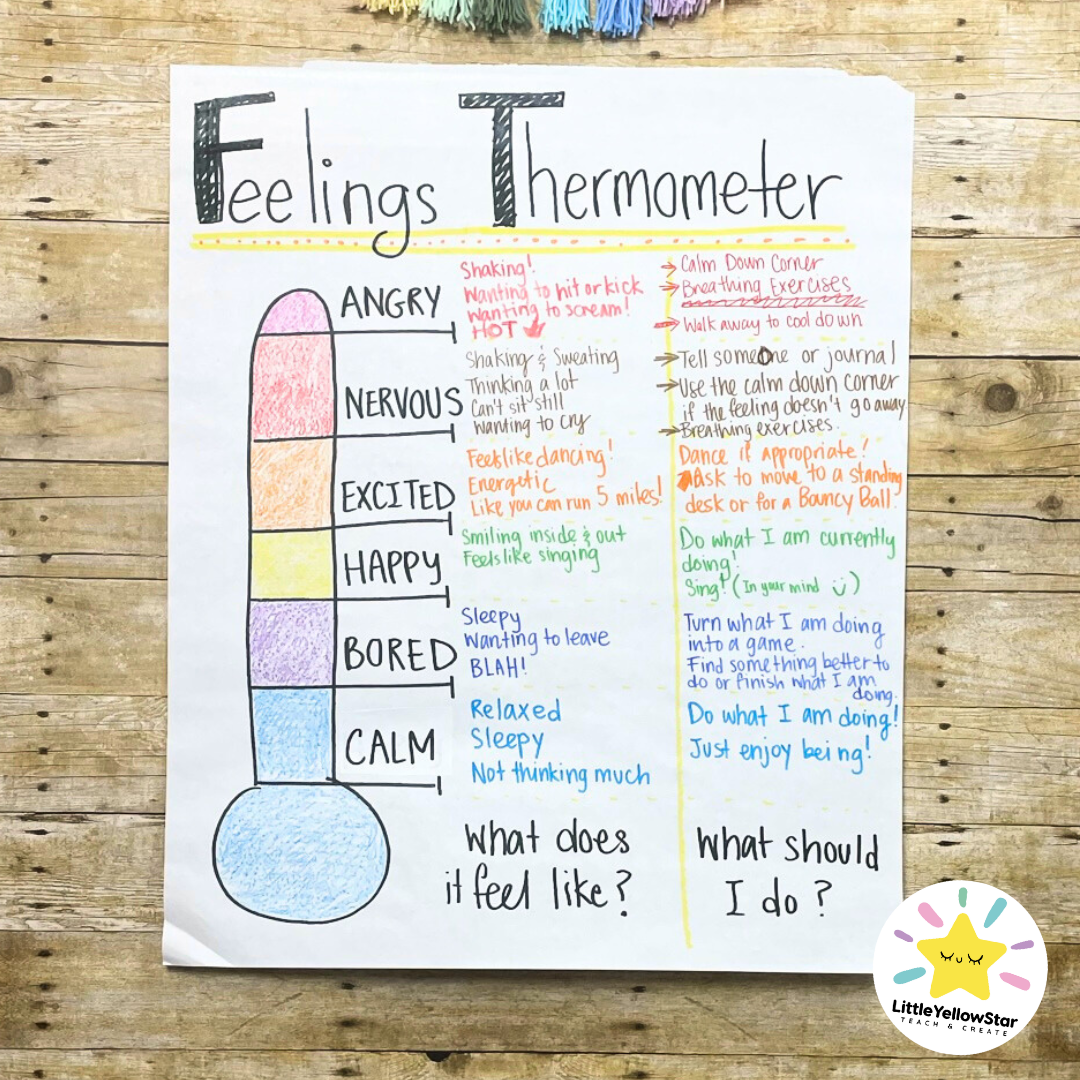 Feelings Thermometer
ANGRY
Shaking!
Wanting to hit or kick
Wanting to scream!
HOT
→ Calm Down Corner
→ Breathing Exercises
→ Walk away to cool down
NERVOUS
Shaking & Sweating
Thinking a lot
Can't sit still
Wanting to cry
→ Tell someone or journal
→ Use the calm down corner
if the feeling doesn't go away
→ Breathing exercises.
EXCITED
Feels like dancing!
Energetic
Like you can run 5 miles!
Dance if appropriate!
Ask to move to a standing
desk or for a Bouncy Ball.
HAPPY
Smiling inside & out
Feels like singing
Do what I am currently
doing!
Sing! (In your mind ü)
BORED
Sleepy
Wanting to leave
BLAH!
Turn what I am doing
into a game.
Find something better to
do or finish what I am
doing.
CALM
Relaxed
Sleepy
Not thinking much
Do what I am doing!
Just enjoy being!
What does
it feel like?
What should
I do?
LittleYellowStar
TEACH & CREATE